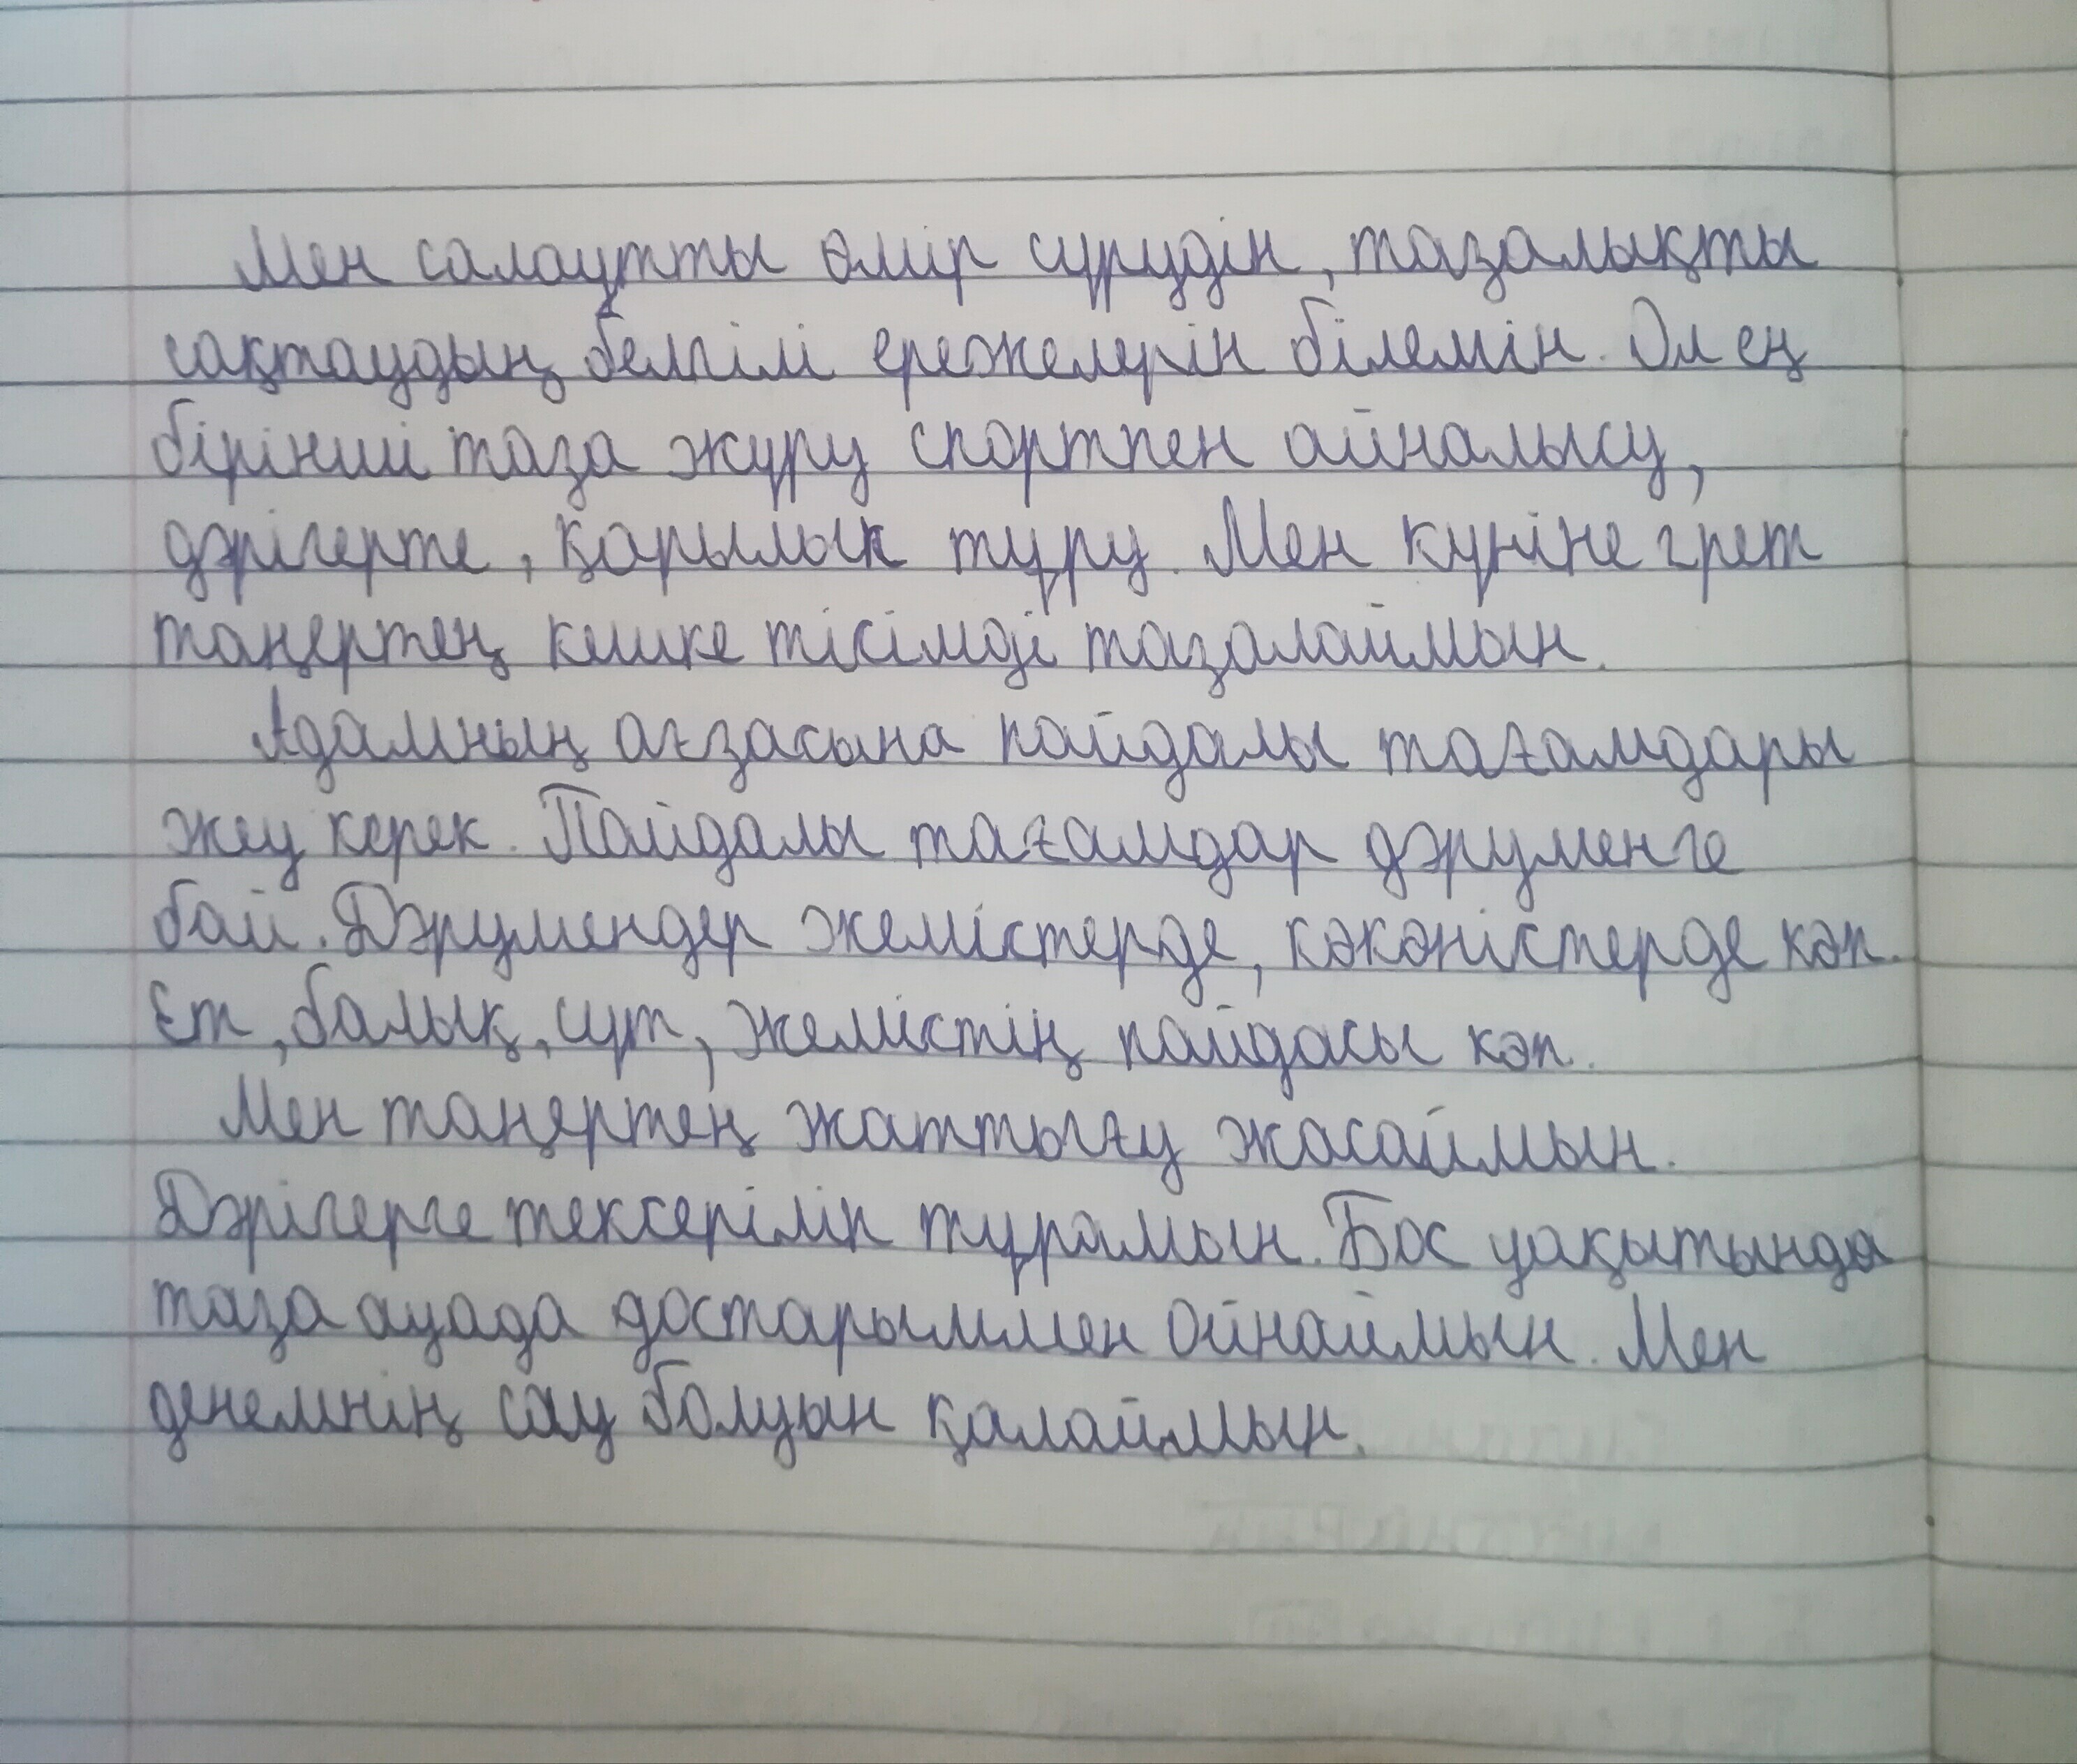 Мен салаутты өмір сүрудін, тазалықты
сақтаудың белгілі ережелерін білемін. Ол ең
бірінші таза жүру спортпен айналысу,
дәрігерге, қарылык тұру. Мен күніне 2 рет
таңертең кешке тісімді тазалаймын.
Адамның ағзасына пайдалы тағамдары
жеу керек. Пайдалы тағамдар дәруменге
бай. Дәрумендер жемістерде, көкөністерде көп.
Ет, балық, сүт, жемістің пайдасы көп.
Мен таңертең жаттығу жасаймын.
Дәрігерге тексеріліп тұрамын. Бос уақытында
таза ауада достарыммен ойнаймын. Мен
денемнің сау болуын қалаймын.